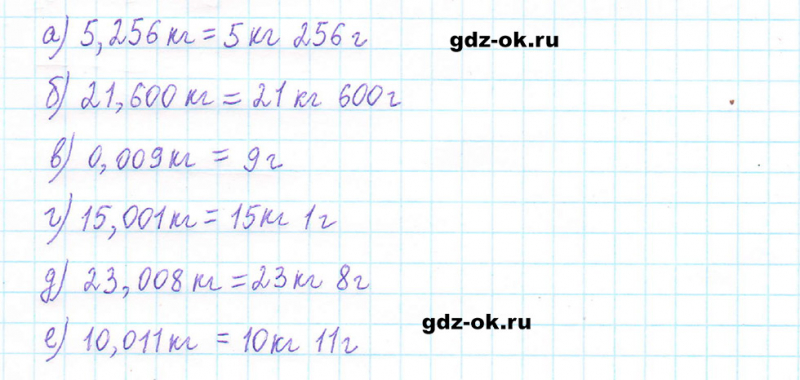 а) 5,256 кг = 5 кг 256 г
gdz-ok.ru
б) 21,600 кг = 21 кг 600 г
в) 0,009 кг = 9 г
г) 15,001 кг = 15 кг 1 г
д) 23,008 кг = 23 кг 8 г
gdz-ok.ru
е) 10,011 кг = 10 кг 11 г